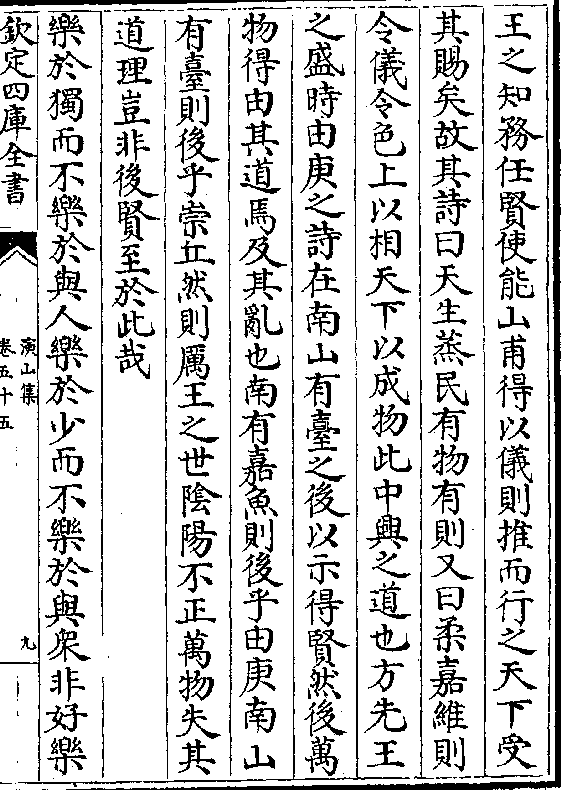 王之知務任賢使能山甫得以儀則推而行之天下受
其賜矣故其詩曰天生蒸民有物有則又曰柔嘉維則
令儀令色上以相天下以成物此中興之道也方先王
之盛時由庚之詩在南山有臺之後以示得賢然後萬
物得由其道焉及其亂也南有嘉魚則後乎由庚南山
有臺則後乎崇丘然則厲王之世陰陽不正萬物失其
道理豈非後賢至於此哉
樂於獨而不樂於與人樂於少而不樂於與衆非好樂
欽定四庫全書
演山集
卷五十五
九